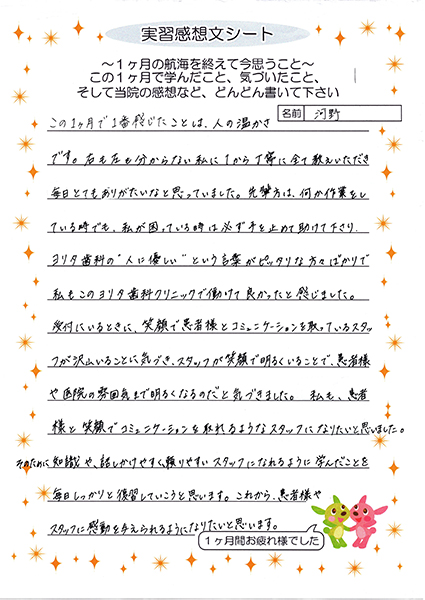 実習感想文シート
～1ヶ月の航海を終えて今思うこと～
この1ヶ月で学んだこと、気づいたこと、
そして当院の感想など、どんどん書いて下さい
名前 河野
この1ヶ月で1番感じたことは、人の温かさ
です。右も左も分からない私に1から丁寧に全て教えいただき
毎日とてもありがたいなと思っていました。先輩方は、何か作業をし
ている時でも、私が困っている時は必ず手を止めて助けて下さり、
ヨリタ歯科の"人に優しい"という言葉がピッタリな方々ばかりで
私もこのヨリタ歯科クリニックで働けて良かったと感じました。
受付にいるときに、笑顔で患者様とコミュニケーションを取っているスタッ
フが沢山いることに気づき、スタッフが笑顔で明るくいることで、患者様
や医院の雰囲気まで明るくなるのだと気づきました。私も、患者
様と笑顔でコミュニケーションを取れるようなスタッフになりたいと思いました。
そのために知識や、話しかけやすく、頼りやすいスタッフになれるように学んだことを
毎日しっかりと復習していこうと思います。これから、患者様や
スタッフに感動を与えられるようになりたいと思います。
1ヶ月間お疲れ様でした